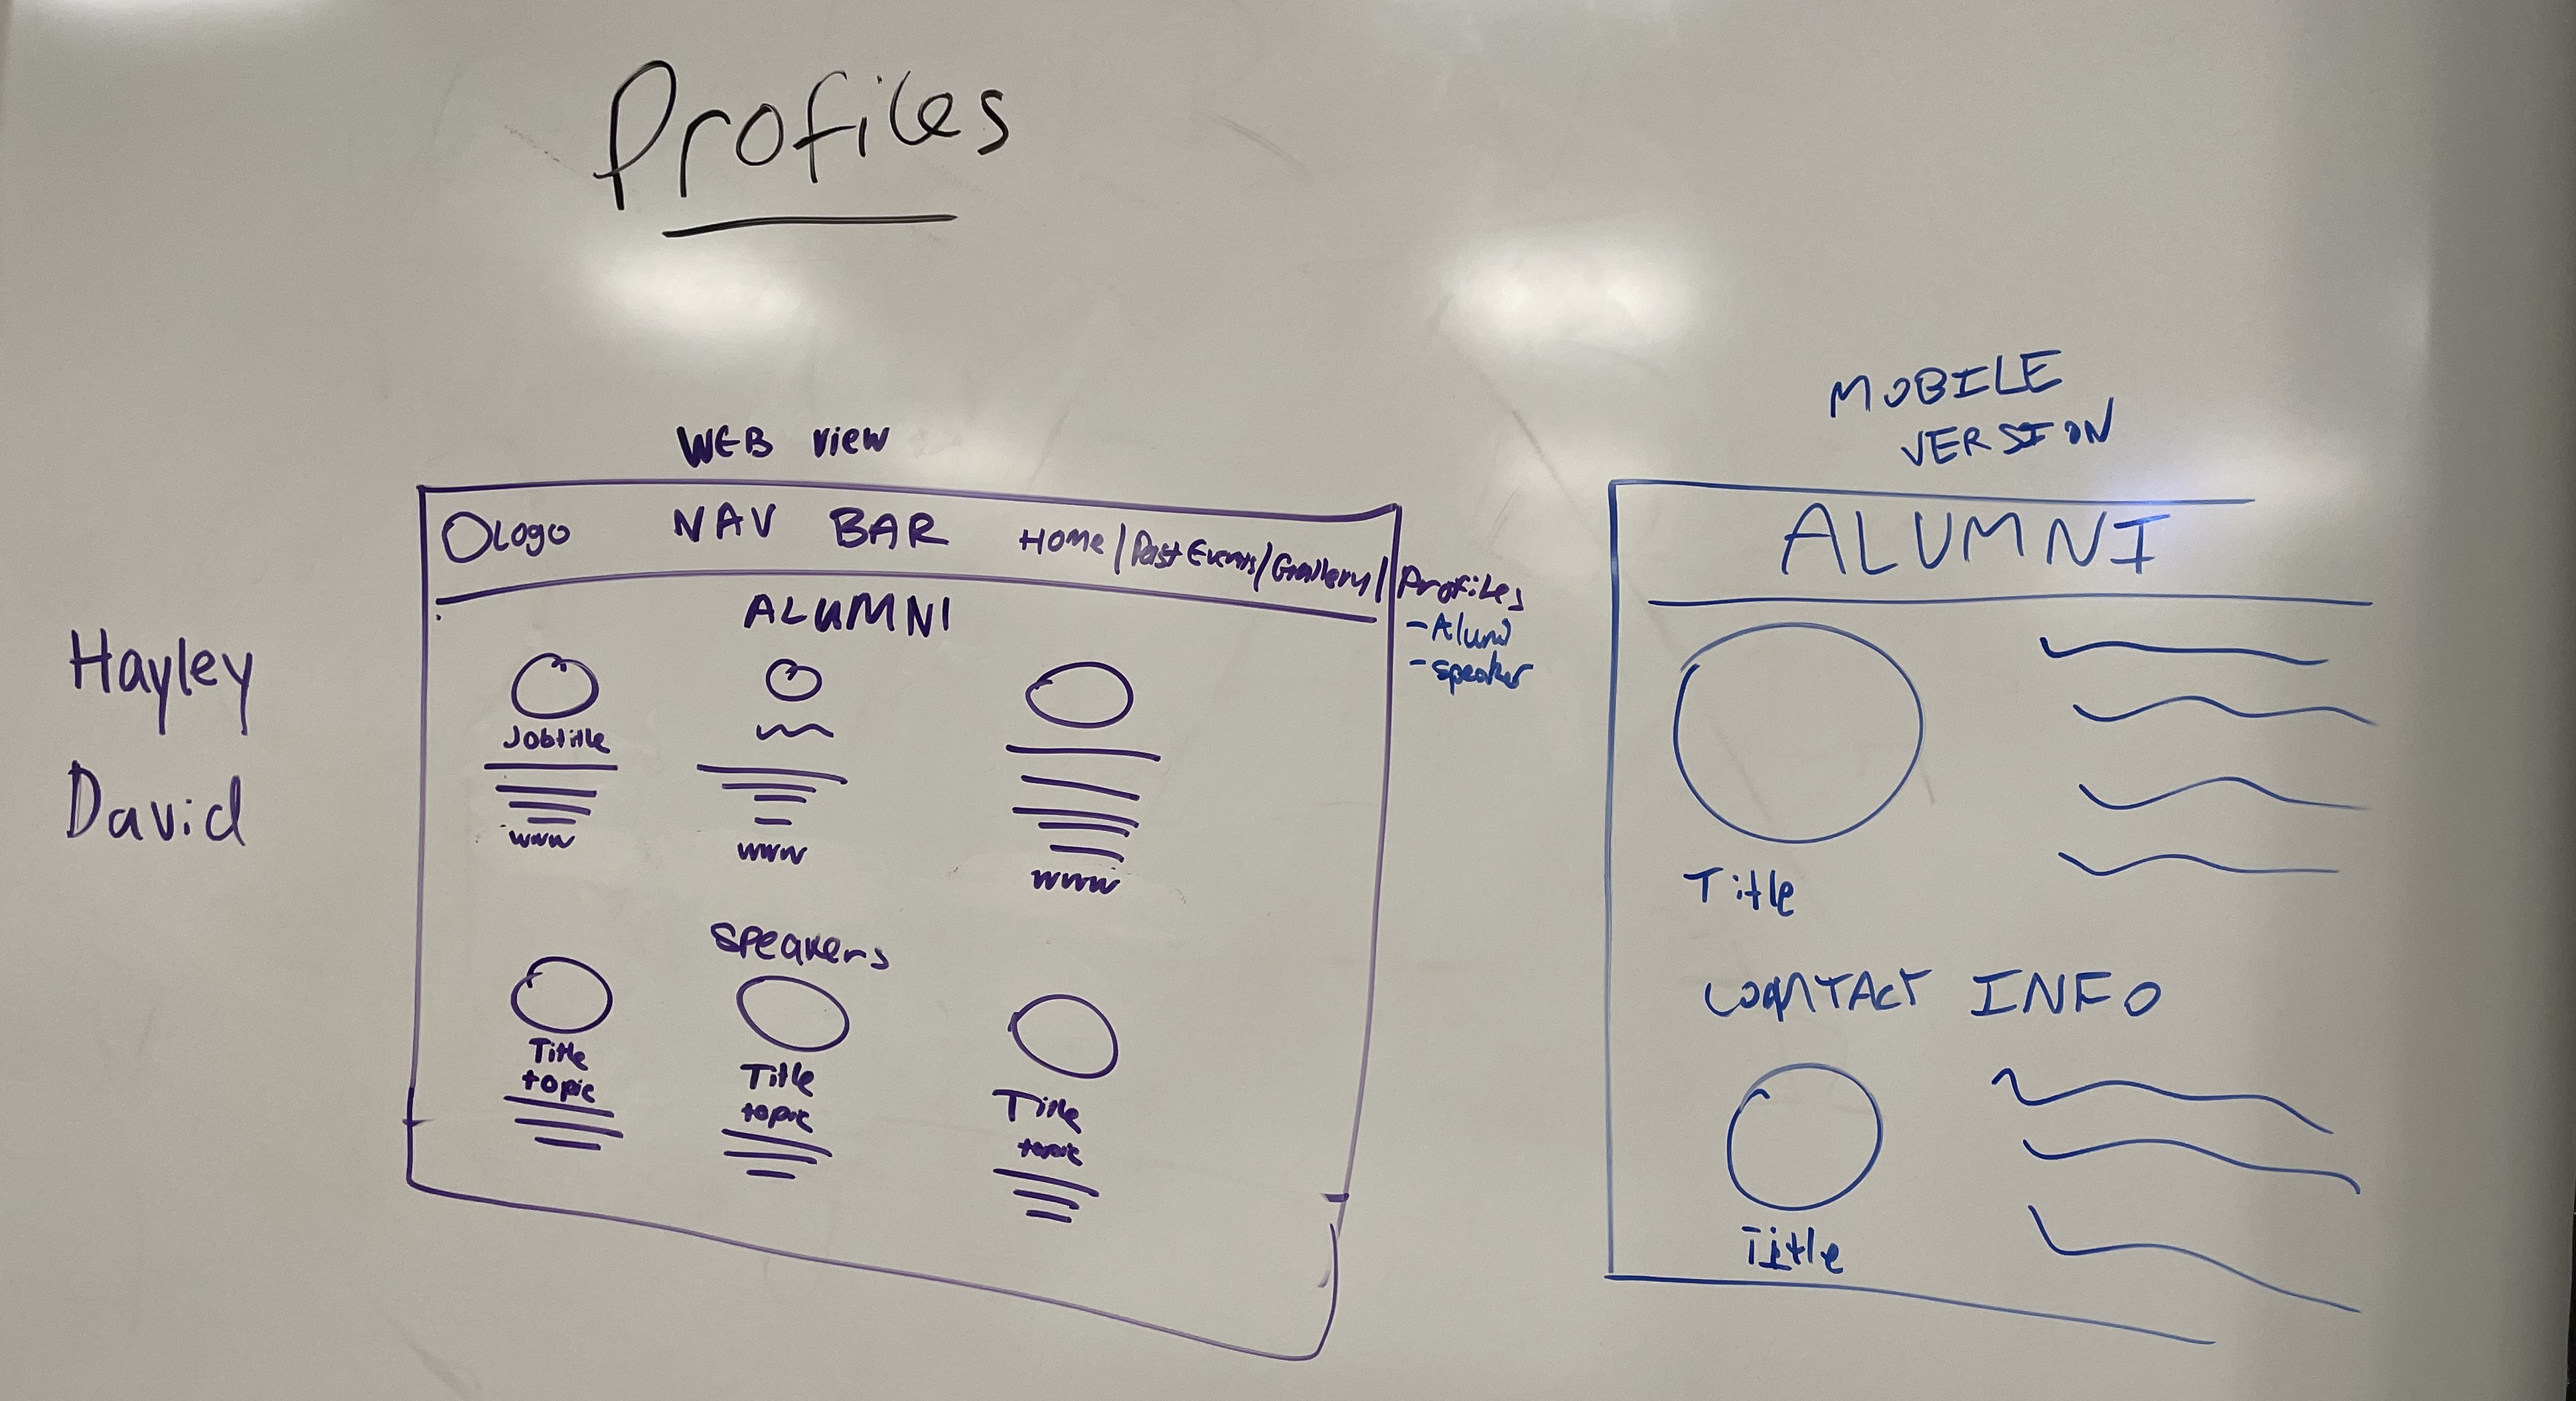 Profiles
WEB view
MOBILE
VERSION
Logo
NAV BAR
Home / Past Events / Gallery / Profiles
- Alumni
- speaker
ALUMNI
Jobtitle
www
www
www
speakers
Title
topic
Title
topic
Title
topic
Hayley
David
ALUMNI
Title
CONTACT INFO
Title